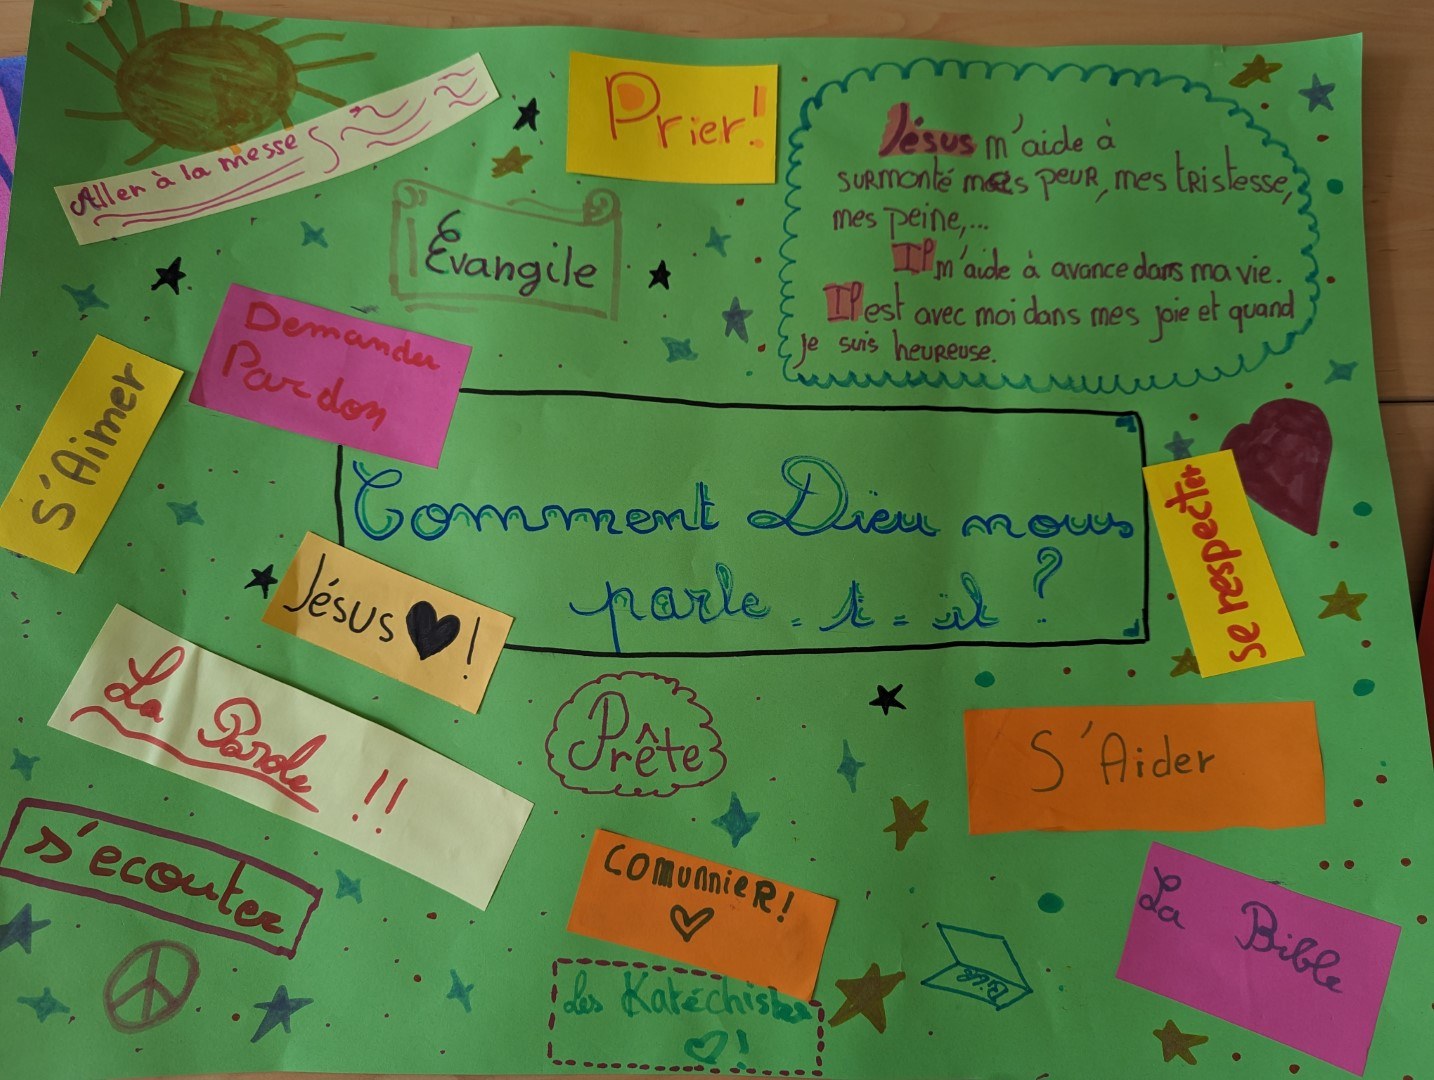 Aller à la messe
Prier!
Jésus m'aide à
surmonté mes peur, mes tristesse,
mes peine,...
Il m'aide à avance dans ma vie.
Il est avec moi dans mes joie et quand
je suis heureuse.
Évangile
Demander
Pardon
S'Aimer
Comment Dieu nous
parle-t-il ?
Se respecter
Jésus ♥!
La Parole !!
Prête
S'Aider
s'ecouter
comunnier!
La Bible
Les Katéchistes
!